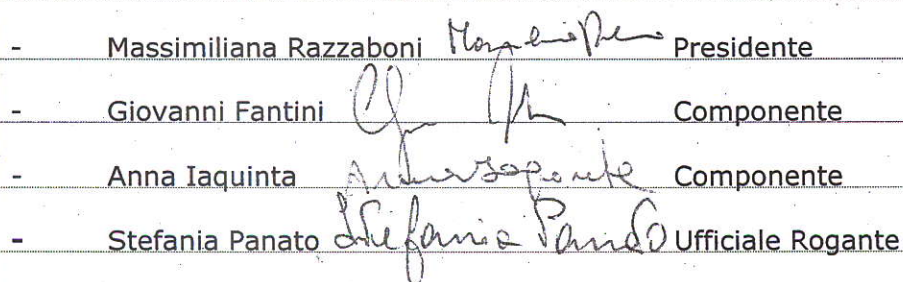 - Massimiliana Razzaboni Presidente
- Giovanni Fantini Componente
- Anna Iaquinta Componente
- Stefania Panato Stefania Panato Ufficiale Rogante